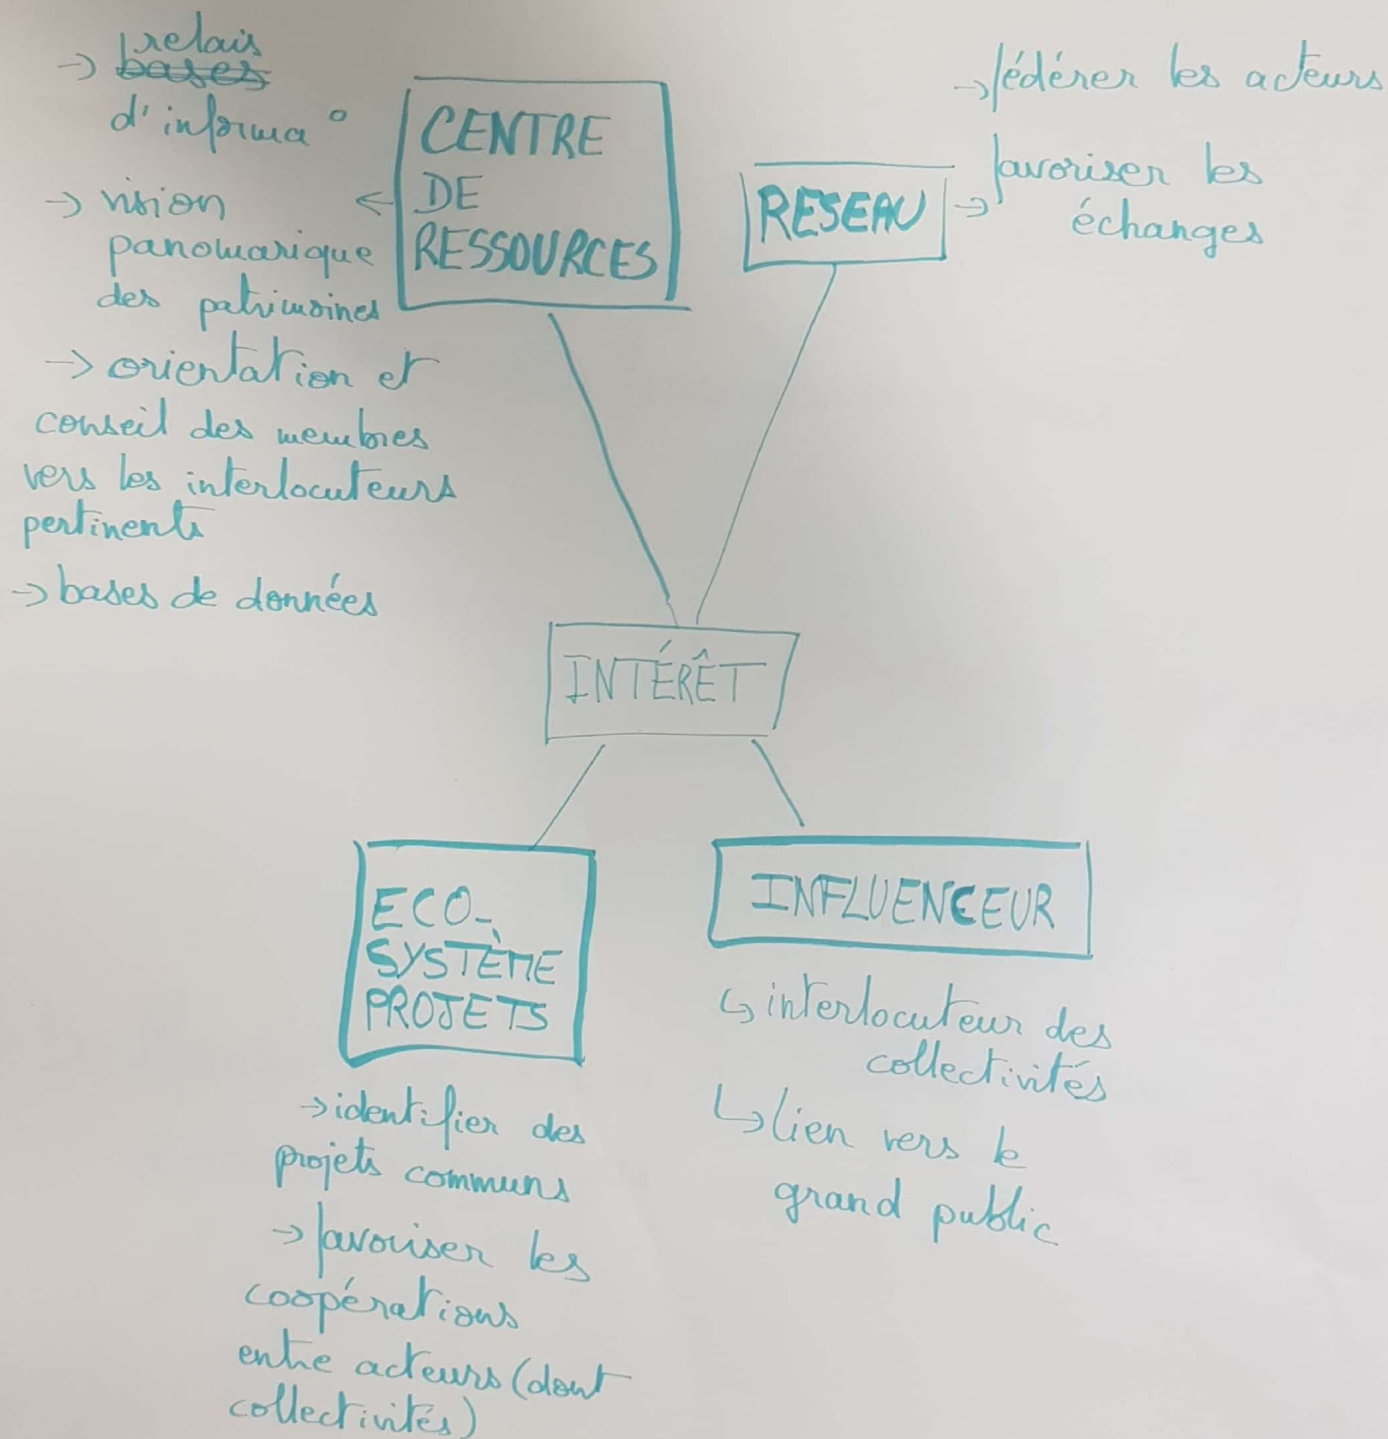 relais
→ ~~bases~~
d'informa°
→ vision
panomarique
des patrimoines
→ orientation et
conseil des membres
vers les interlocuteurs
pertinents
→ bases de données
CENTRE
DE
RESSOURCES
←
RESEAU
→ fédérer les acteurs
→ favoriser les
échanges
INTÉRÊT
ECO-
SYSTÈME
PROJETS
→ identifier des
projets communs
→ favoriser les
coopérations
entre acteurs (dont
collectivités)
INFLUENCEUR
↳ interlocuteur des
collectivités
↳ lien vers le
grand public